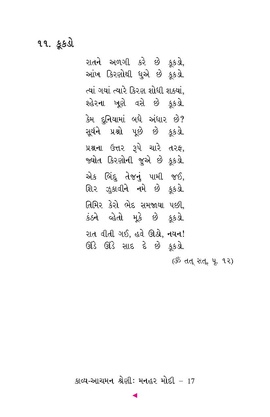 ૧૧. કૂકડો
રાતને અળગી કરે છે કૂકડો,
આંખ કિરણોથી ધુએ છે કૂકડો.
ત્યાં ગયાં ત્યારે કિરણ શોધી શક્યાં,
શહેરના ખૂણે વસે છે કૂકડો.
કેમ દુનિયામાં બધે અંધાર છે?
સૂર્યને પ્રશ્નો પૂછે છે કૂકડો.
પ્રશ્નના ઉત્તર રૂપે ચારે તરફ,
જ્યોત કિરણોની જુએ છે કૂકડો.
એક બિંદુ તેજનું પામી જઈ,
શિર ઝુકાવીને નમે છે કૂકડો.
તિમિર કેરો ભેદ સમજાયા પછી,
કંઠને વ્હેતો મૂકે છે કૂકડો.
રાત વીતી ગઈ, હવે ઊઠો, નયન!
ઊંડે ઊંડે સાદ દે છે કૂકડો.
(ૐ તત્ સત્, પૃ. ૧૨)
કાવ્ય-આચમન શ્રેણીઃ મનહર મોદી – 17